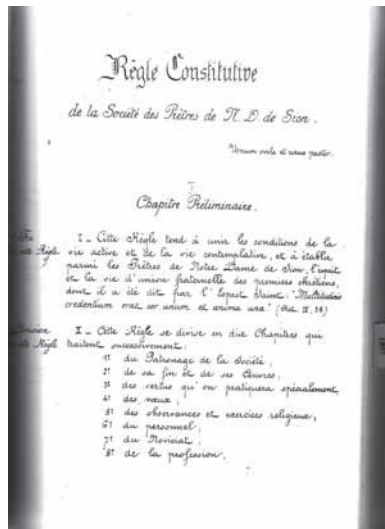 Règle Constitutive
de la Société des Prêtres de N. D. de Sion.
Unum ovile et unus pastor.
I
Chapitre Préliminaire.
I _ Cette Règle tend à unir les conditions de la
Règle vie active et de la vie contemplative, et à établir
parmi les Prêtres de Notre Dame de Sion, l'esprit
et la vie d'union fraternelle des premiers chrétiens,
dont il a été dit par l'Esprit Saint: "Multitudinis
credentium erat cor unum et anima una"
II _ Cette Règle se divise en dix Chapitres qui
Règle traitent successivement:
1º du Patronage de la Société;
2º de sa fin et de ses Œuvres;
3º des vertus qu'on pratiquera spécialement
4º des vœux;
5º des observances et exercices religieux;
6º du personnel;
7º du Noviciat;
8º de la profession;